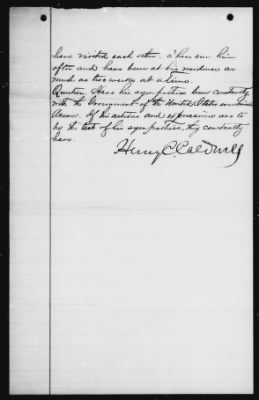 have visited each other. I have seen him
often and have been at his residence as
much as two weeks at a time.
Question. Have his sympathies been constantly
with the Government of the United States or
Answer. If his actions and expressions are to
be the test of his sympathies, they constantly
have.
Henry C. Caldwell